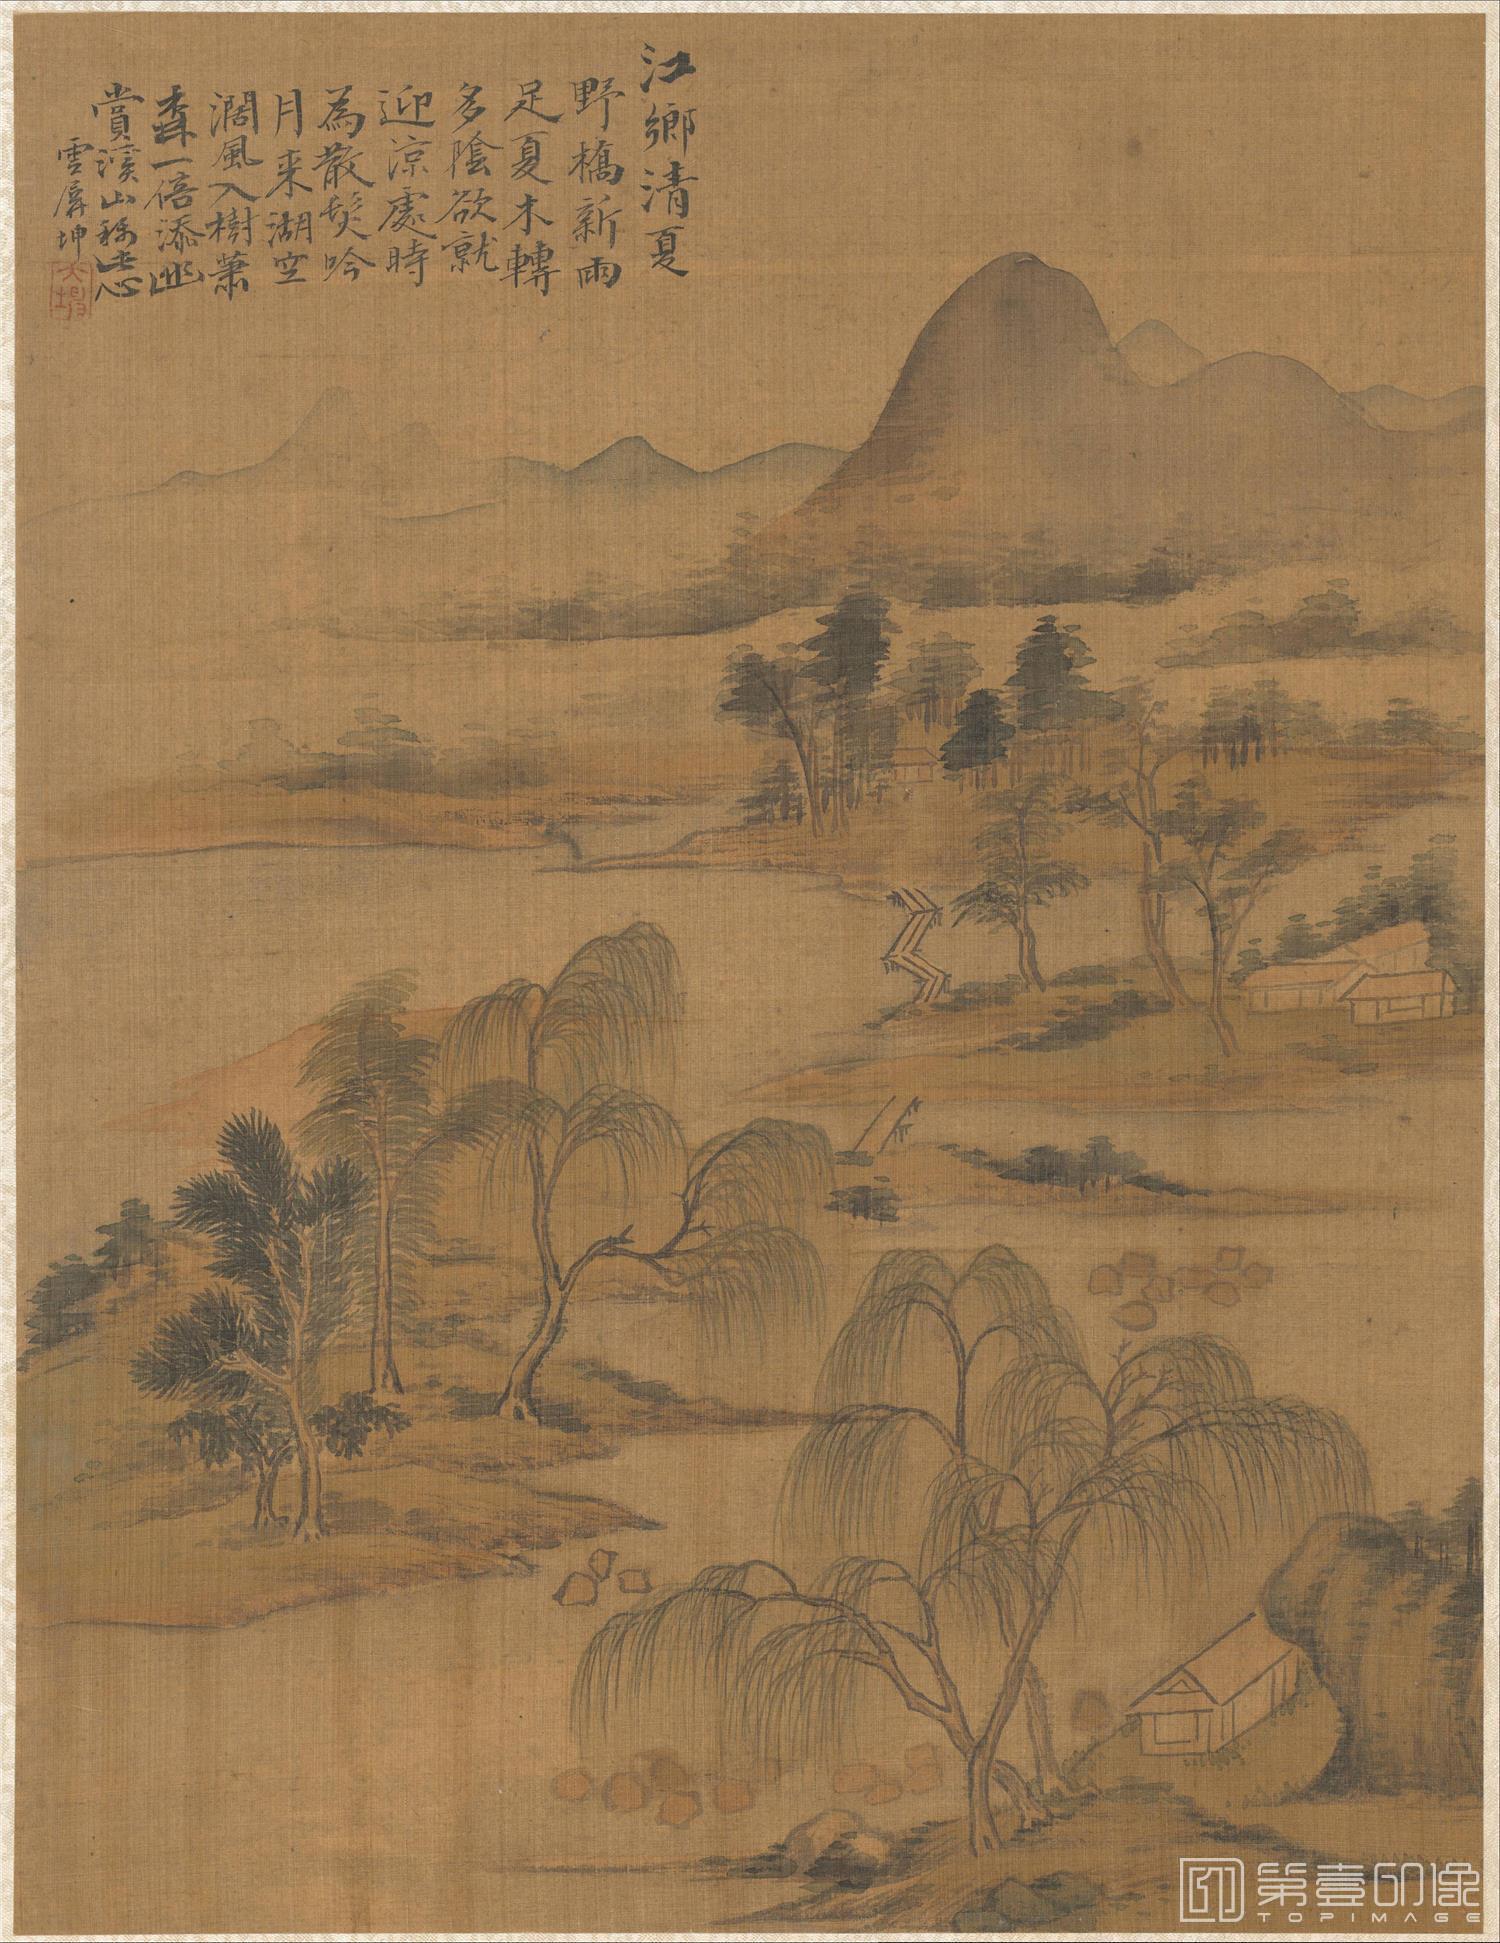 江鄉清夏
野橋新雨
足夏木轉
多陰欲就
迎涼處時
為散髮吟
月來湖空
濶風入樹蕭
森一倍添幽
賞溪山務忘
雲屏坤
第壹印像
TOPIMAGE